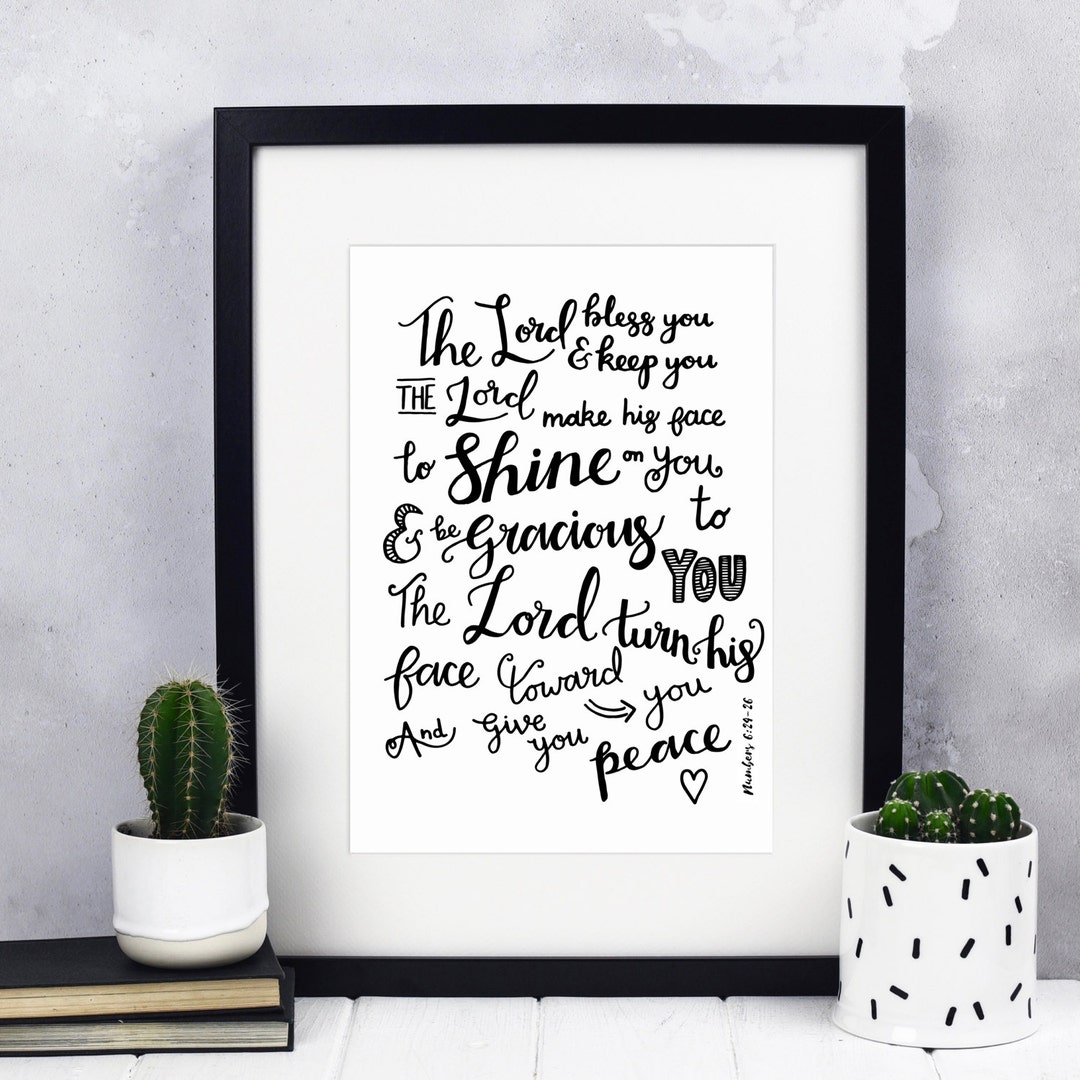 The Lord bless you
& keep you
THE Lord make his face
to Shine on you
& be Gracious to
YOU
The Lord turn his
face toward you
And give you peace
Numbers 6:24-26